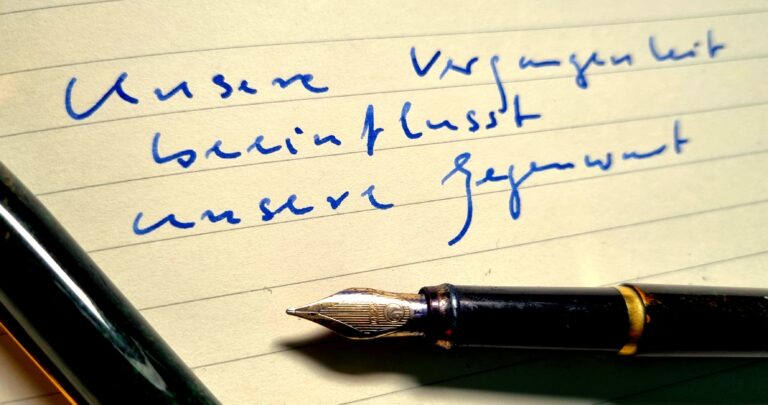 Unsere Vergangenheit
beeinflusst
unsere Gegenwart